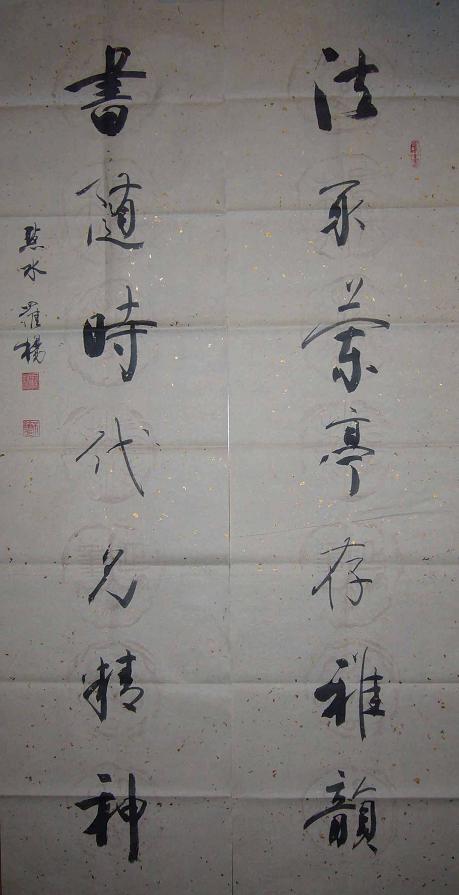 法承蘭亭存雅韻
書隨時代見精神
水 羅楊